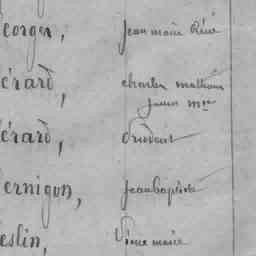 eorges, jean marie René
érard, charles mathurin
julien Mie
érard, prudent
ernigon, jean baptiste
eslin, Pierre marie